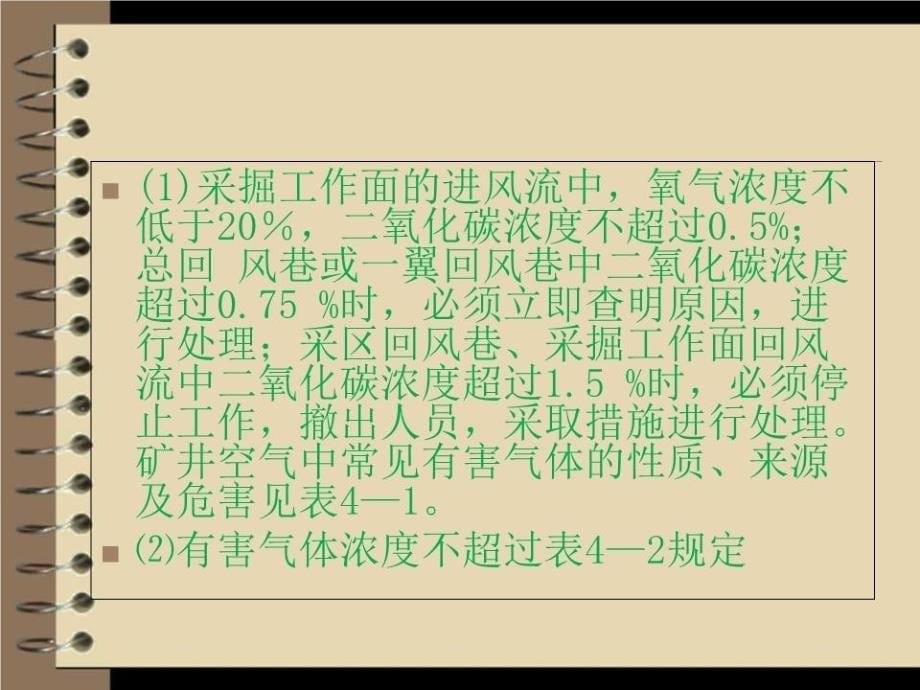 (1)采掘工作面的进风流中，氧气浓度不
低于20％，二氧化碳浓度不超过0.5%；
总回 风巷或一翼回风巷中二氧化碳浓度
超过0.75 %时，必须立即查明原因，进
行处理；采区回风巷、采掘工作面回风
流中二氧化碳浓度超过1.5 %时，必须停
止工作，撤出人员，采取措施进行处理。
矿井空气中常见有害气体的性质、来源
及危害见表4—1。
⑵有害气体浓度不超过表4—2规定